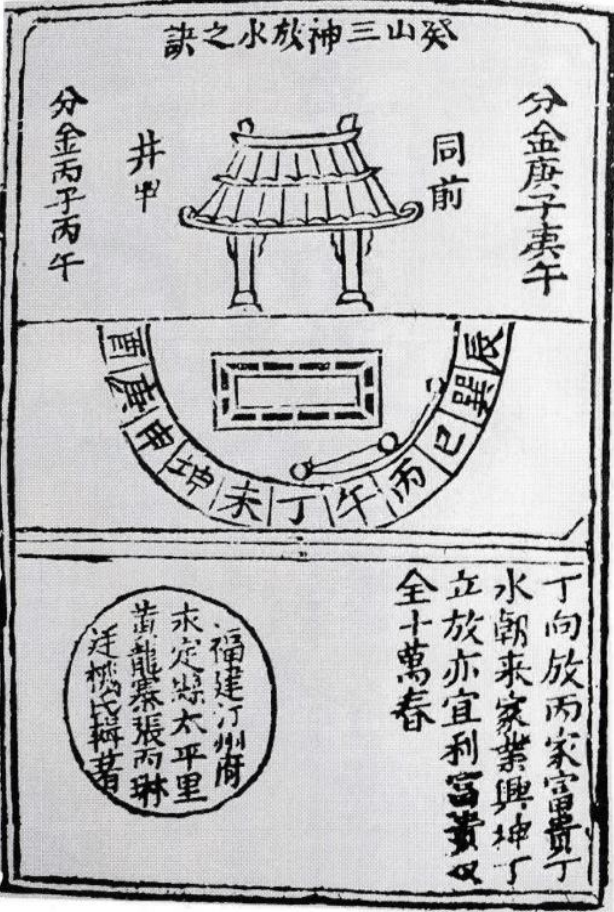 癸山三神放水之訣
分金庚子庚午
同前
井
分金丙子丙午
辰巽巳丙午丁未坤申庚酉
丁向放丙家富貴丁
水朝来家業興坤丁
立放亦宜利富貴双
全十萬春
福建汀州府
永定縣太平里
黄龍寨張丙琳
廷氏輯著